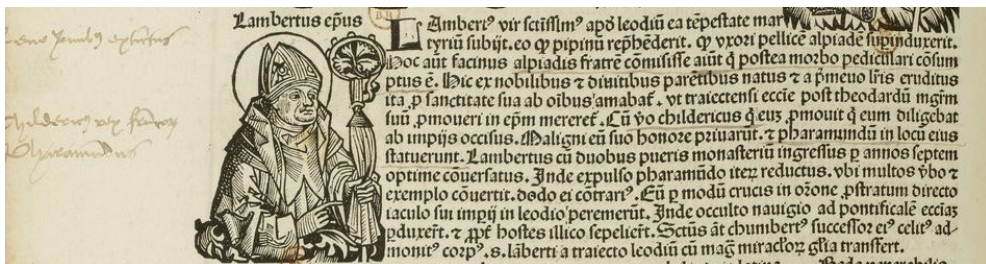 Lambertus ep̃us
LAmbertꝰ vir sctissimꝰ apd̕ leodiũ ea tẽpestate mar
tyriũ subijt. eo ꝙ pipinũ rep̃hẽderit. ꝙ vxori pellicẽ alpiadẽ supinduxerit.
Hoc aũt facinus alpiadis fratrẽ cõmisisse aiũt q̃ postea morbo pediculari cõsum
ptus ẽ. Hic ex nobilibus ⁊ diuitibus parẽtibus natus ⁊ a p̃meuo lr̃is eruditus
ita ꝓ sanctitate sua ab oĩbus amabat᷑. vt traiectensi eccĩe post theodardũ mgr̃m
suũ ꝓmoueri in ep̃m mereret᷑. Cũ ṽo childericus q̃ euʒ ꝓmouit q̃ eum diligebat
ab impijs occisus. Maligni eũ suo honore priuarũt. ⁊ pharamundũ in locũ eius
statuerunt. Lambertus cũ duobus pueris monasteriũ ingressus ꝑ annos septem
optime cõuersatus. Inde expulso pharamũdo iterʒ reductus. vbi multos ṽbo ⁊
exemplo cõuertit. dodo ei cõtrariꝰ. Eũ ꝑ modũ crucis in or̃one ꝓstratum directo
iaculo sui impij in leodio peremerũt. Inde occulto nauigio ad pontificalẽ eccĩaʒ
ꝑduxert̃. ⁊ ꝓpt̃ hostes illico sepeliert̃. Sctũs ãt chumbertꝰ successor eiꝰ celitꝰ ad-
monitꝰ corpꝰ .s. lãberti a traiecto leodiũ cũ mag̃ miracl̃oꝝ gl̃ia transfert.